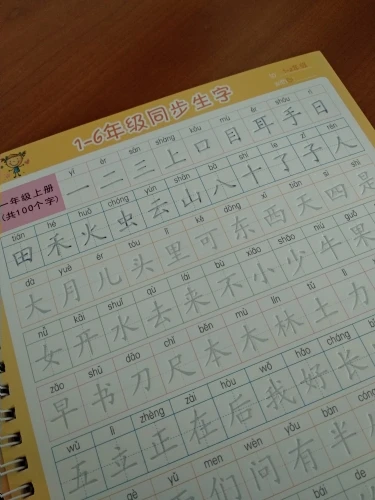 1-6年级同步生字
一年级上册
(共100个字)
yī èr sān shàng kǒu mù ěr shǒu rì
一 二 三 上 口 目 耳 手 日
tián hé huǒ chóng yún shān bā shí le zǐ rén
田 禾 火 虫 云 山 八 十 了 子 人
dà yuè ér tóu lǐ kě dōng xī tiān sì shì
大 月 儿 头 里 可 东 西 天 四 是
nǚ kāi shuǐ qù lái bù xiǎo shǎo niú guǒ
女 开 水 去 来 不 小 少 牛 果
zǎo shū dāo chǐ běn mù lín tǔ lì
早 书 刀 尺 本 木 林 土 力
wǔ lì zhèng zài hòu wǒ hǎo cháng
五 立 正 在 后 我 好 长
gè yǔ men wèn yǒu bàn cóng
们 问 有 半